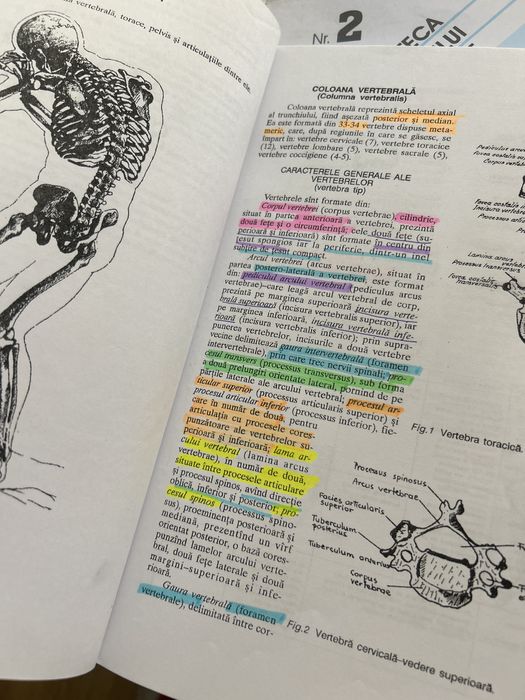 vertebrală, torace, pelvis și articulațiile dintre ele.
Nr. 2
COLOANA VERTEBRALĂ
(Columna vertebralis)
Coloana vertebrală reprezintă scheletul axial
al trunchiului, fiind așezată posterior și median.
Ea este formată din 33-34 vertebre dispuse meta-
meric, care, după regiunile în care se găsesc, se
împart în: vertebre cervicale (7), vertebre toracice
(12), vertebre lombare (5), vertebre sacrale (5),
vertebre coccigiene (4-5).
CARACTERELE GENERALE ALE
VERTEBRELOR
(vertebra tip)
Vertebrele sînt formate din:
Corpul vertebrei (corpus vertebrae), cilindric,
situat în partea anterioară a vertebrei, prezintă
două fețe și o circumferință; cele două fețe (su-
perioară și inferioară) sînt formate în centru din
țesut spongios iar la periferie, dintr-un inel
subțire de țesut compact.
Arcul vertebrei (arcus vertebrae), situat în
partea postero-laterală a vertebrei, este format
din: pediculul arcului vertebral (pediculus arcus
vertebrae)–care leagă arcul vertebral de corp,
prezintă pe marginea superioară incisura verte-
brală superioară (incisura vertebralis superior), iar
pe marginea inferioară, incisura vertebrală infe-
rioară (incisura vertebralis inferior); prin supra-
punerea vertebrelor, incisurile a două vertebre
vecine delimitează gaura intervertebrală (foramen
intervertebrale), prin care trec nervii spinali; pro-
cesul transvers (processus transversus), sub forma
a două prelungiri orientate lateral, pornind de pe
părțile laterale ale arcului vertebral; procesul ar-
ticular superior (processus articularis superior) și
procesul articular inferior (processus inferior), fie-
care în număr de două, pentru
articulația cu procesele cores-
punzătoare ale vertebrelor su-
perioară și inferioară; lama ar-
cului vertebral (lamina arcus
vertebrae), în număr de două,
situate între procesele articulare
și procesul spinos, avînd direcție
oblică, inferior și posterior; pro-
cesul spinos (processus spino-
sus), proeminența posterioară și
mediană, prezentînd un vîrf
orientat posterior, o bază cores-
punzînd lamelor arcului verte-
bral, două fețe laterale și două
margini–superioară și infe-
rioară.
Gaura vertebrală (foramen
vertebrale), delimitată între cor-
Pediculus arcus
Corpus vert
Lamina arcus
Processus transversus
Fig.1 Vertebra toracică.
Processus spinosus
Arcus vertebrae
Facies articularis
superior
Tuberculum
posterius
Tuberculum anterius
Corpus
vertebrae
Fig.2 Vertebră cervicală–vedere superioară.